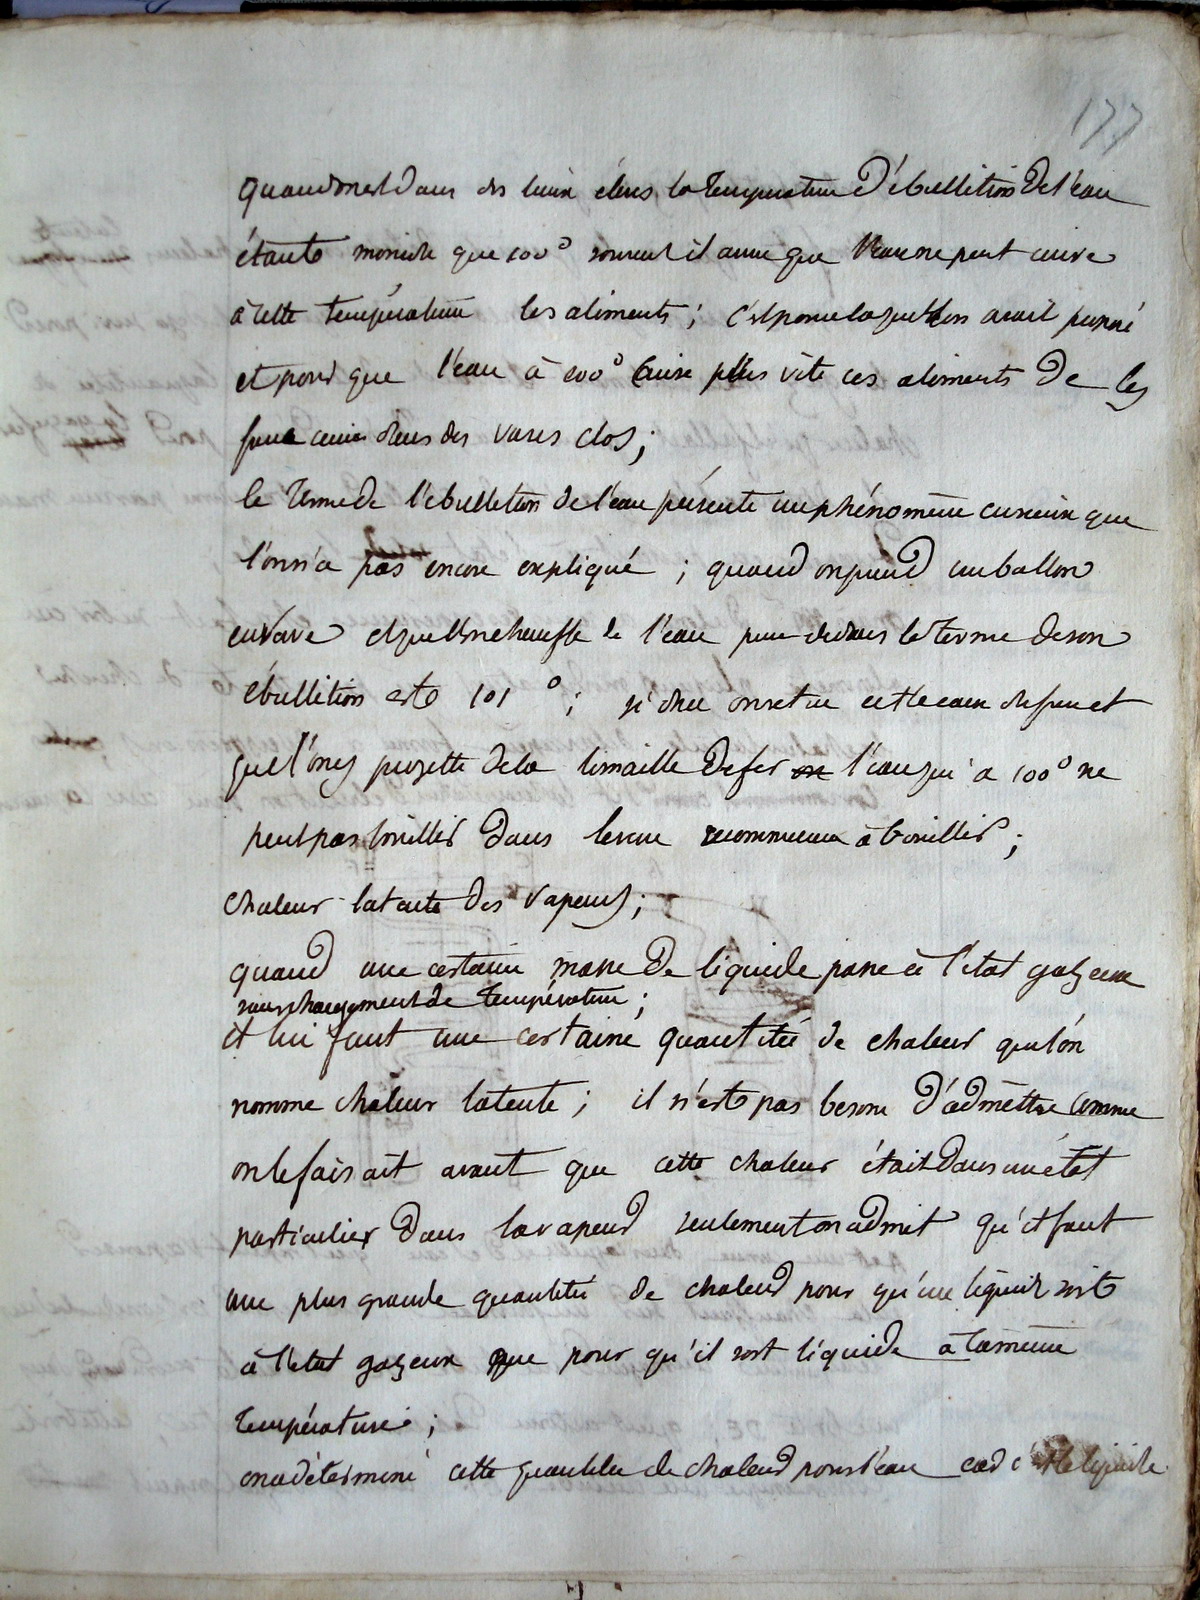 177
quand on est dans des lieux élevés la température d'ébullition de l'eau
étante moindre que 100° souvent il arrive que l'eau ne peut cuire
à cette température les aliments; c'est pour cela que l'on avait pensé
et pour que l'eau à 100° cuise plus vite ces aliments de les
faire cuire dans des vases clos;
le terme de l'ébullition de l'eau présente un phénomène curieux que
l'on n'a pas encore expliqué; quand on prend un ballon
en verre et que l'on chauffe de l'eau pure dedans le terme de son
ébullition est 101°; si donc on retire cette eau du feu et
que l'on y projette de la limaille de fer l'eau qui à 100° ne
peut pas bouillir dans le verre recommence à bouillir;
chaleur latente des vapeurs;
quand une certaine masse de liquide passe à l'état gazeux
sans changement de température;
il lui faut une certaine quantité de chaleur que l'on
nomme chaleur latente; il n'est pas besoin d'admettre comme
on le faisait avant que cette chaleur était dans un état
particulier dans la vapeur seulement on admet qu'il faut
une plus grande quantité de chaleur pour qu'un liquide soit
à l'état gazeux que pour qu'il soit liquide à la même
température;
on a déterminé cette quantité de chaleur pour l'eau liquide